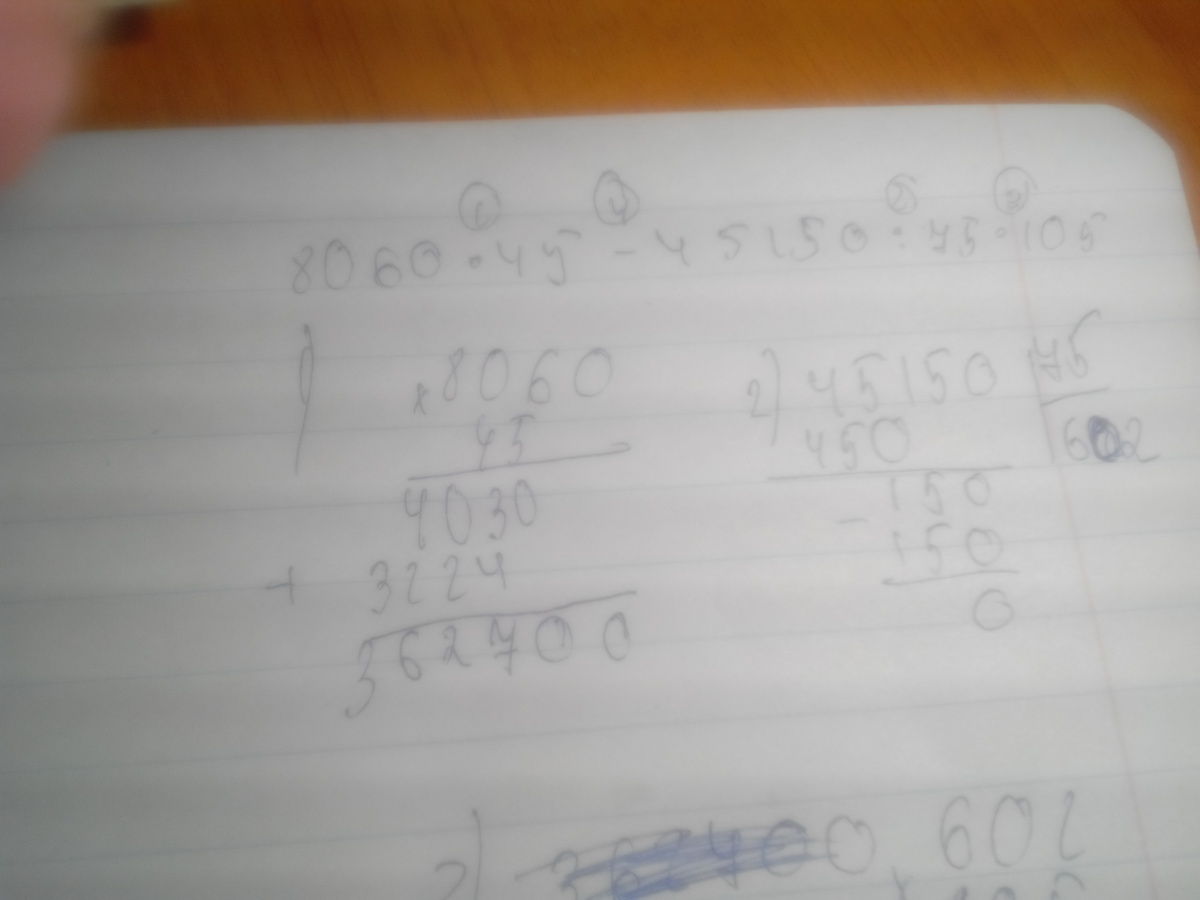 ① ④ ② ③
8060 · 45 - 45150 : 75 · 105
1) × 8060 2) 45150 75
45 450 602
4030 - 150
+ 3224 150
362700 0
3) 602
×